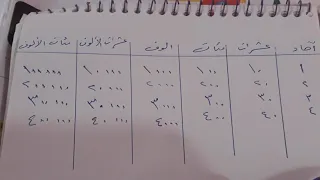 آحاد عشرات مئات الوف عشرات الألوف مئات الألوف
١ ١٠ ١٠٠ ١٠٠٠ ١٠٠٠٠ ١٠٠٠٠٠
٢ ٢٠ ٢٠٠ ٢٠٠٠ ٢٠٠٠٠ ٢٠٠٠٠٠
٣ ٣٠ ٣٠٠ ٣٠٠٠ ٣٠٠٠٠ ٣٠٠٠٠٠
٤ ٤٠ ٤٠٠ ٤٠٠٠ ٤٠٠٠٠ ٤٠٠٠٠٠